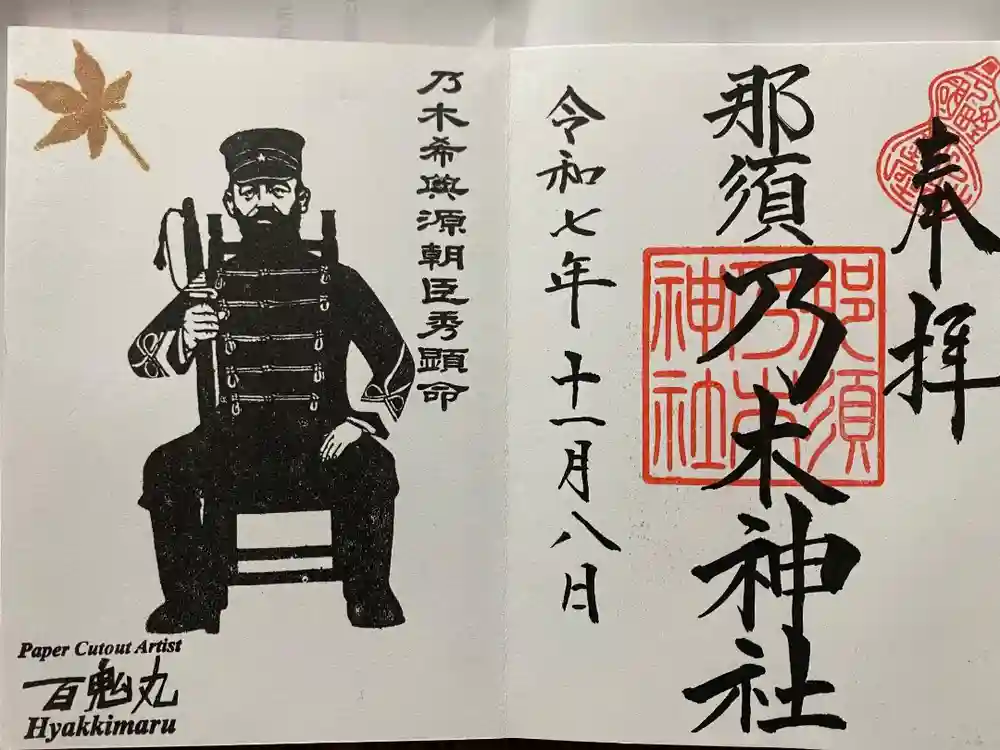 奉拝
那須乃木神社
那須乃木神社
令和七年十一月八日
乃木希典源朝臣秀顕命
Paper Cutout Artist
百鬼丸
Hyakkimaru